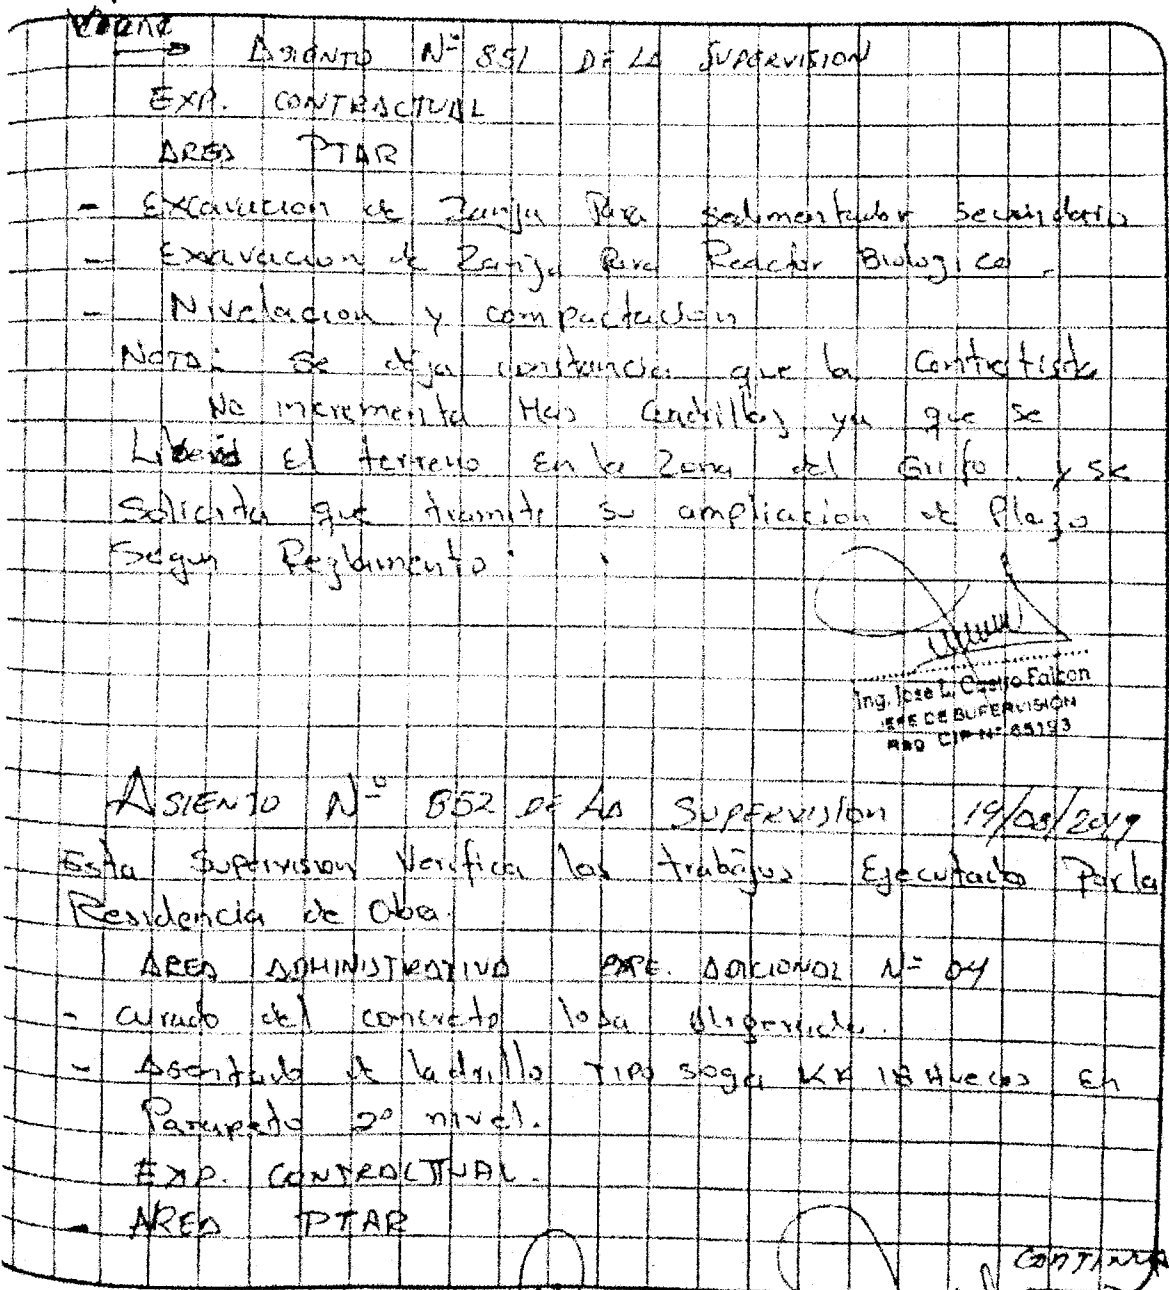 Viene
→ ASIENTO Nº 851 DE LA SUPERVISION
EXP. CONTRACTUAL
AREA PTAR
- Excavacion de Zanja Para sedimentador Secundario
- Excavacion de Zanja Para Reactor Biologico.
- Nivelacion y compactacion
NOTA: se deja constancia que la Contratista
No incrementa Mas Cuadrillas ya que se
Libero El terreno En la Zona del Grifo. y se
Solicita que tramite su ampliacion de Plazo
Segun Reglamento.
Ing. Jose L. Castro Falcon
JEFE DE SUPERVISIÓN
REG CIP Nº 65193
ASIENTO Nº 852 DE LA SUPERVISION 19/08/2019
Esta Supervision Verifica los trabajos Ejecutado Por la
Residencia de Oba.
AREA ADMINISTRATIVA EXPE. ADICIONAL Nº 04
- curado del concreto losa aligerada.
- Asentado de ladrillo TIPO soga KK 18 Huecos En
Parapeto 2º nivel.
EXP. CONTRACTUAL.
- AREA PTAR
CONTINUA